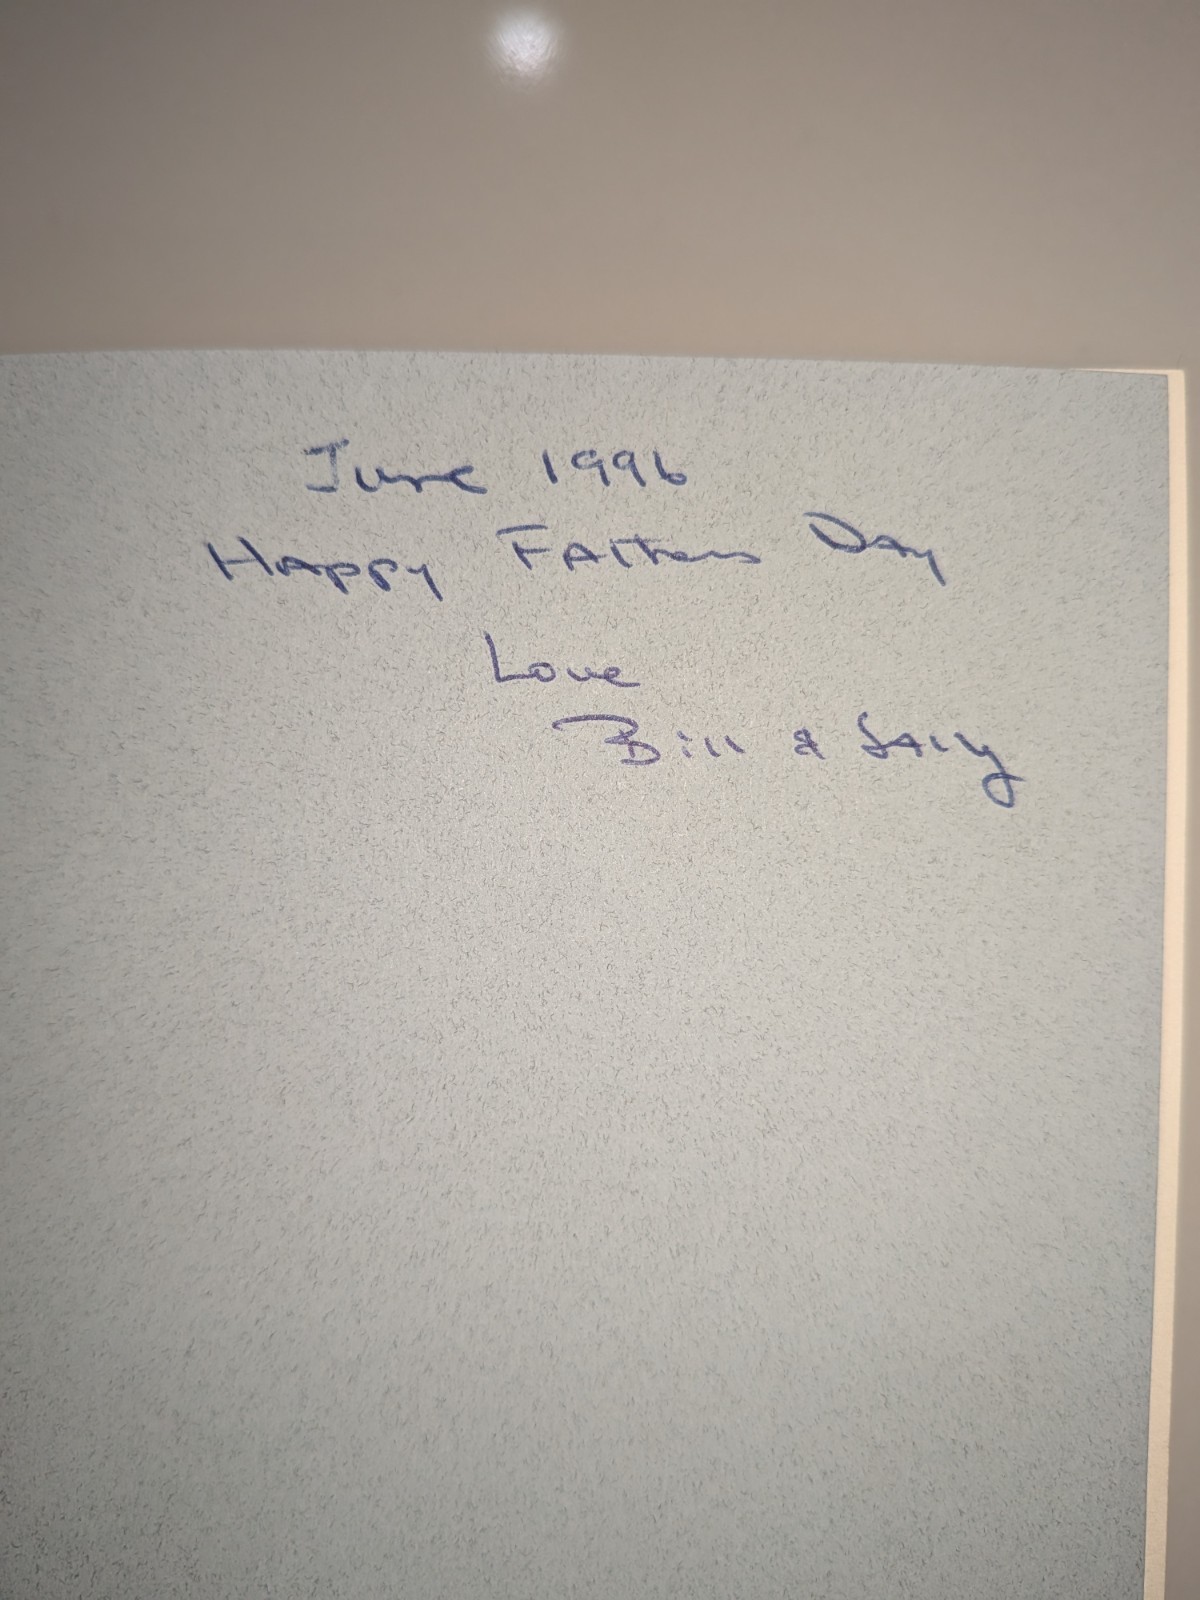 June 1996
Happy Fathers Day
Love
Bill & Sally